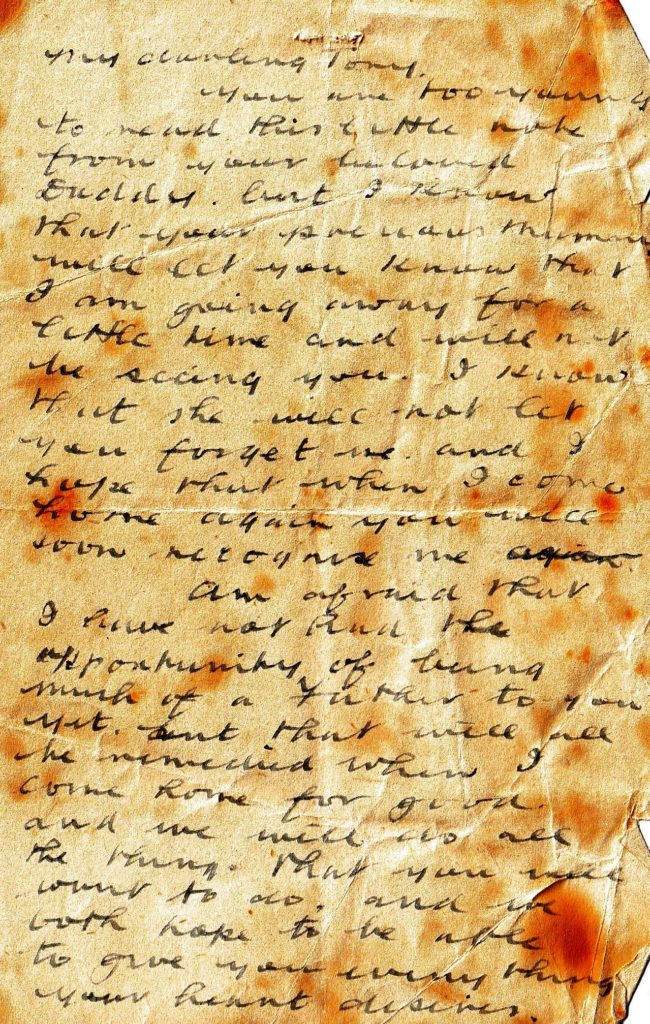 My darling Tony,
You are too young
to read this little note
from your beloved
Daddy. but I know
that your precious Mummy
will let you know that
I am going away for a
little time and will not
be seeing you. I know
that she will not let
you forget me. and I
hope that when I come
home again you will
soon recognise me again.
Am afraid that
I have not had the
opportunity of being
much of a Father to you
yet. but that will all
be remedied when I
come home for good.
and we will do all
the things. that you will
want to do. and we
both hope to be able
to give you every thing
your heart desires.